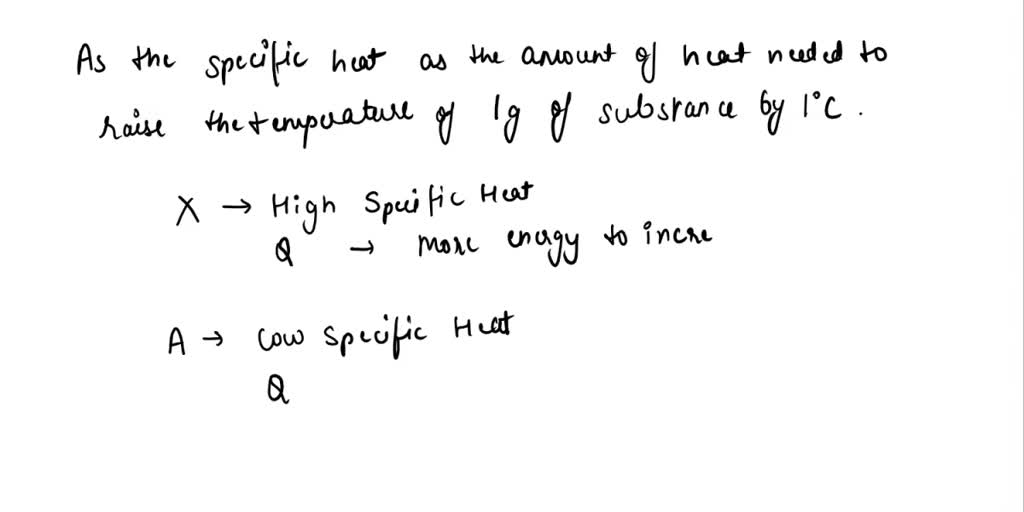 As the specific heat as the amount of heat needed to
raise the temperature of 1g of substance by 1°C.
X → High Specific Heat
Q → More energy to incre
A → Low Specific Heat
Q